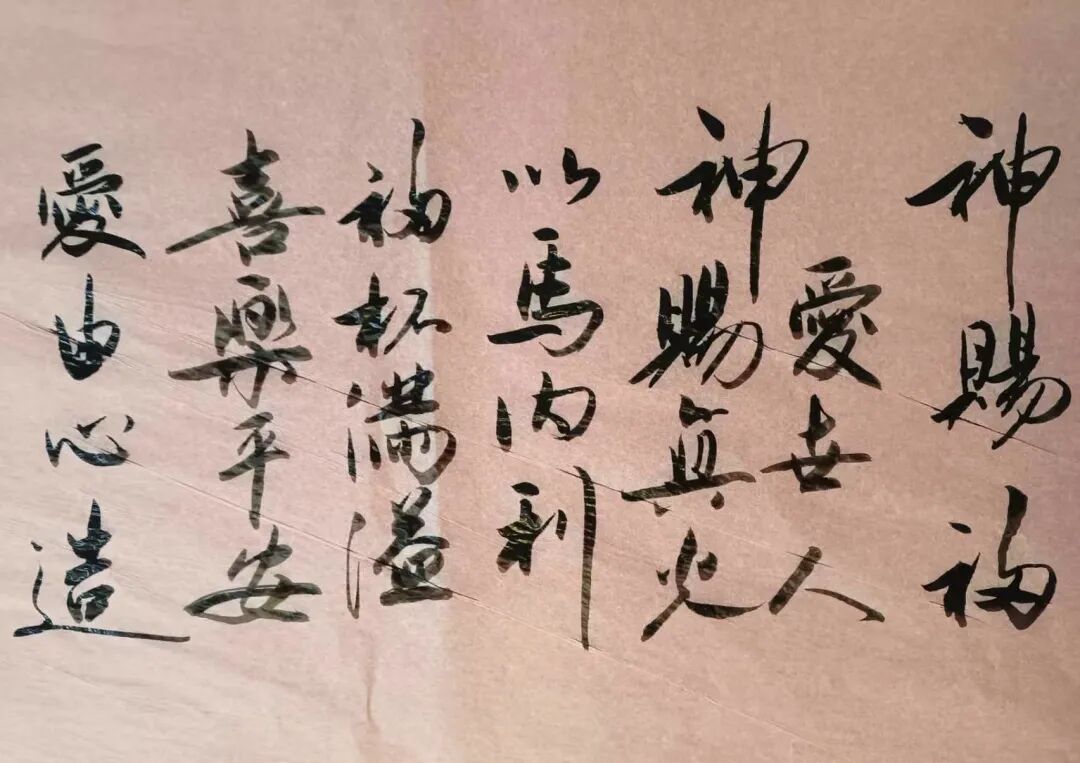 神賜福
愛世人
神賜真光
以馬内利
福杯滿溢
喜樂平安
愛由心造